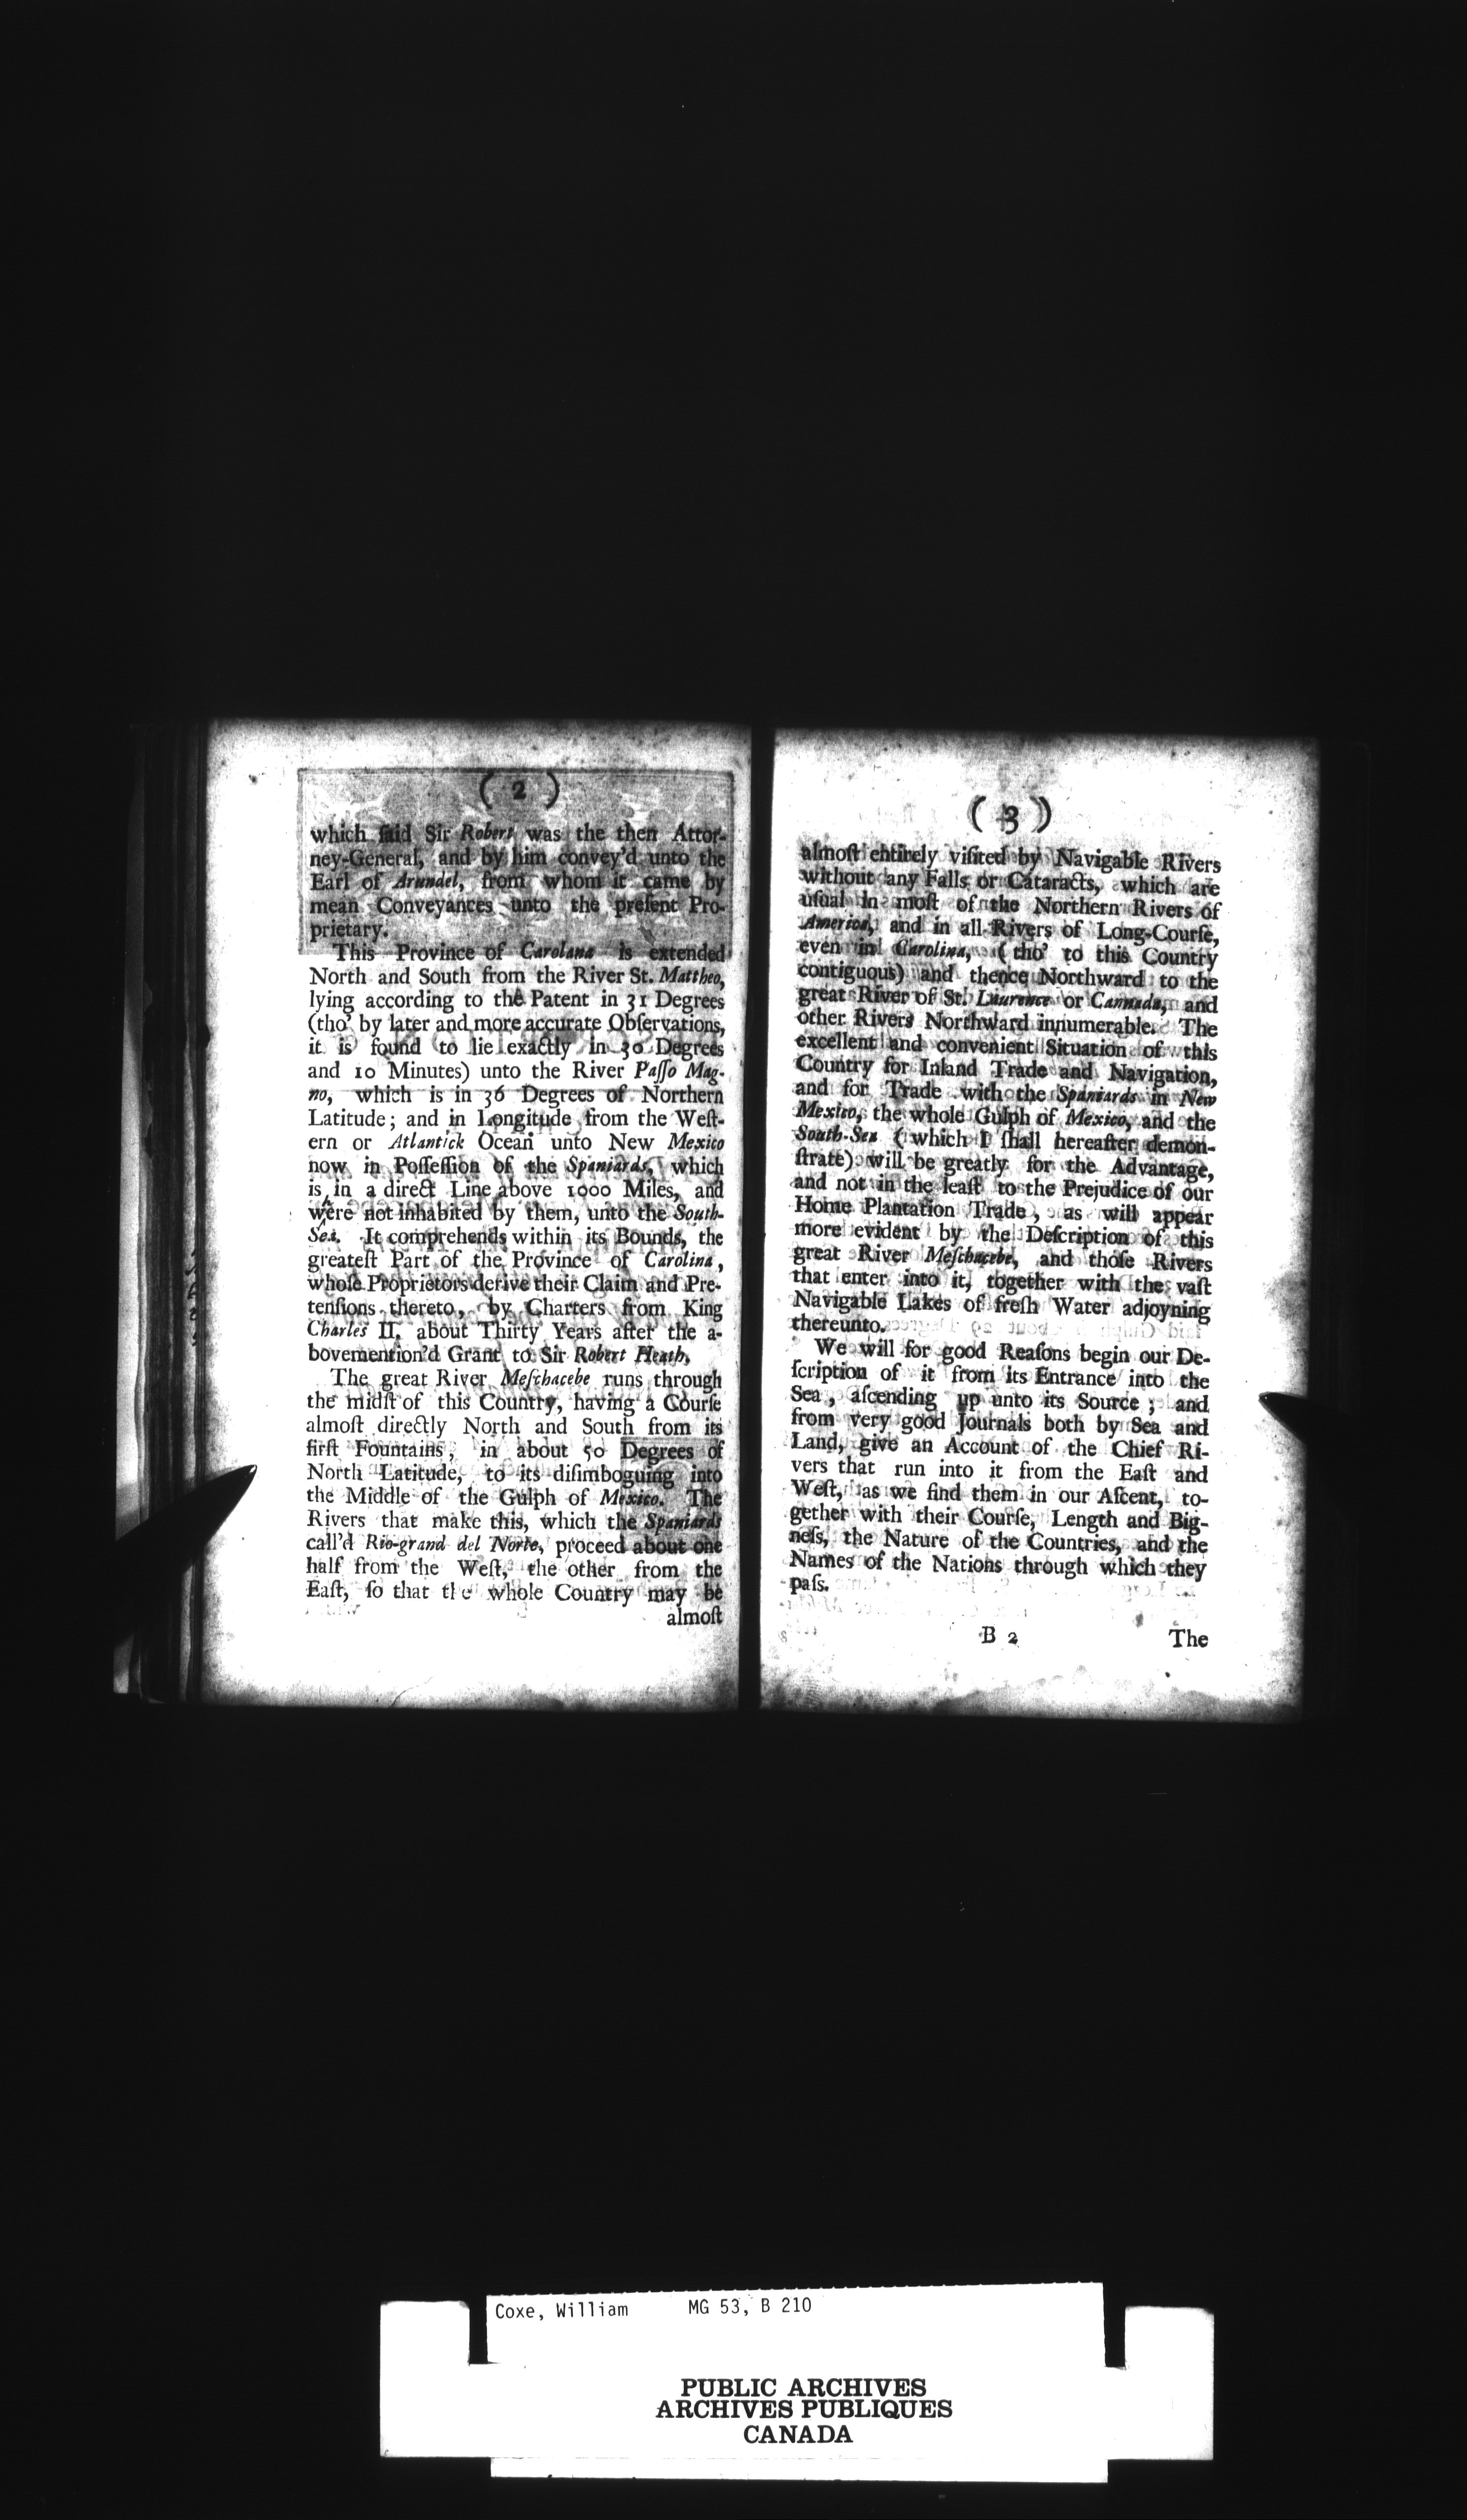 ( 2 )
which said Sir Robert was the then Attor-
ney-General, and by him convey'd unto the
Earl of Arundel, from whom it came by
mean Conveyances unto the preſent Pro-
prietary.
This Province of Carolana is extended
North and South from the River St. Mattheo,
lying according to the Patent in 31 Degrees
(tho' by later and more accurate Obſervations,
it is found to lie exactly in 30 Degrees
and 10 Minutes) unto the River Paſſo Mag-
no, which is in 36 Degrees of Northern
Latitude; and in Longitude from the Weſt-
ern or Atlantick Ocean unto New Mexico
now in Poſſeſſion of the Spaniards, which
is in a direct Line above 1000 Miles, and
were not inhabited by them, unto the South-
Sea. It comprehends within its Bounds, the
greateſt Part of the Province of Carolina,
whoſe Proprietors derive their Claim and Pre-
tenſions thereto, by Charters from King
Charles II. about Thirty Years after the a-
bovemention'd Grant to Sir Robert Heath,
The great River Meſchacebe runs through
the midſt of this Country, having a Courſe
almoſt directly North and South from its
firſt Fountains, in about 50 Degrees of
North Latitude, to its diſimboguing into
the Middle of the Gulph of Mexico. The
Rivers that make this, which the Spaniards
call'd Rio-grand del Norte, proceed about one
half from the Weſt, the other from the
Eaſt, ſo that the whole Country may be
almoſt
( 3 )
almoſt entirely viſited by Navigable Rivers
without any Falls or Cataracts, which are
uſual in moſt of the Northern Rivers of
America, and in all Rivers of Long-Courſe,
even in Carolina, (tho' to this Country
contiguous) and thence Northward to the
great River of St. Laurence or Cannada, and
other Rivers Northward innumerable. The
excellent and convenient Situation of this
Country for Inland Trade and Navigation,
and for Trade with the Spaniards in New
Mexico, the whole Gulph of Mexico, and the
South-Sea (which I ſhall hereafter demon-
ſtrate) will be greatly for the Advantage,
and not in the leaſt to the Prejudice of our
Home Plantation Trade, as will appear
more evident by the Deſcription of this
great River Meſchacebe, and thoſe Rivers
that enter into it, together with the vaſt
Navigable Lakes of freſh Water adjoyning
thereunto.
We will for good Reaſons begin our De-
ſcription of it from its Entrance into the
Sea, aſcending up unto its Source; and
from very good Journals both by Sea and
Land, give an Account of the Chief Ri-
vers that run into it from the Eaſt and
Weſt, as we find them in our Aſcent, to-
gether with their Courſe, Length and Big-
neſs, the Nature of the Countries, and the
Names of the Nations through which they
paſs.
B 2 The
Coxe, William MG 53, B 210
PUBLIC ARCHIVES
ARCHIVES PUBLIQUES
CANADA